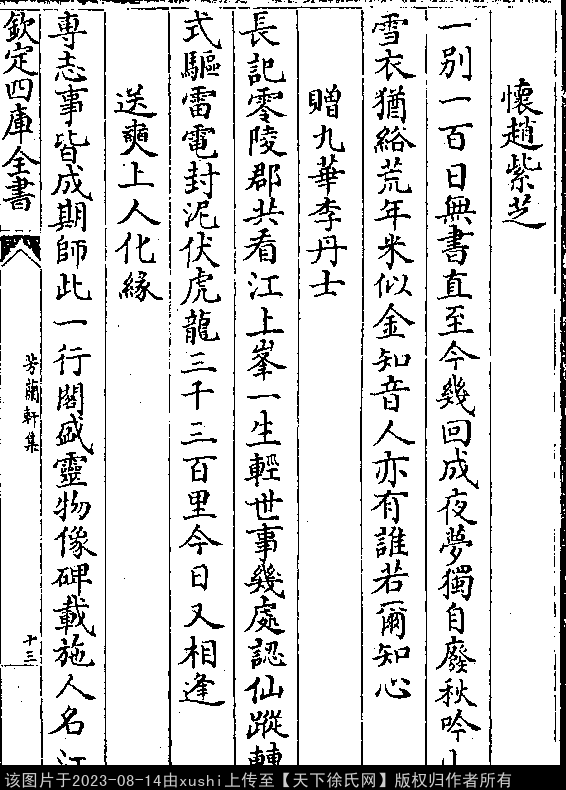 懷趙紫芝
一别一百日無書直至今幾回成夜夢獨自廢秋吟
雪衣猶綌荒年米似金知音人亦有誰若爾知心
贈九華李丹士
長記零陵郡共看江上峯一生輕世事幾處認仙蹤
式驅雷電封泥伏虎龍三千三百里今日又相逢
送奭上人化緣
專志事皆成期師此一行閣盛靈物像碑載施人名
欽定四庫全書
芳蘭軒集
十三
该图片于2023-08-14由xushi上传至【天下徐氏网】版权归作者所有